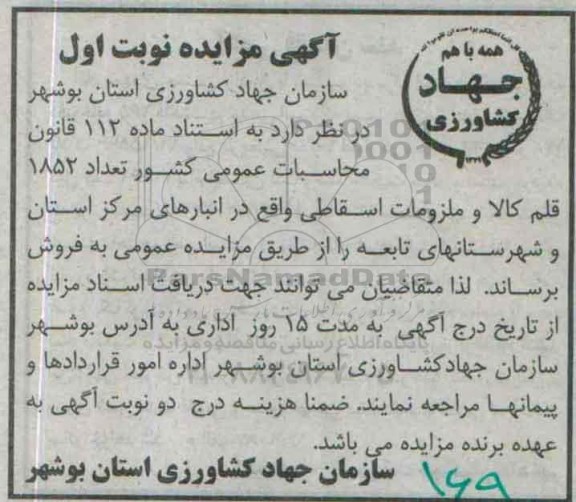 همه با هم
جهاد
کشاورزی
آگهی مزایده نوبت اول
سازمان جهاد کشاورزی استان بوشهر
در نظر دارد به استناد ماده ۱۱۲ قانون
محاسبات عمومی کشور تعداد ۱۸۵۲
قلم کالا و ملزومات اسقاطی واقع در انبارهای مرکز استان
و شهرستانهای تابعه را از طریق مزایده عمومی به فروش
برساند. لذا متقاضیان می توانند جهت دریافت اسناد مزایده
از تاریخ درج آگهی به مدت ۱۵ روز اداری به آدرس بوشهر
سازمان جهادکشاورزی استان بوشهر اداره امور قراردادها و
پیمانها مراجعه نمایند. ضمنا هزینه درج دو نوبت آگهی به
عهده برنده مزایده می باشد.
سازمان جهاد کشاورزی استان بوشهر
۱۶۹
ParsNamadData
پایگاه اطلاع رسانی مناقصه و مزایده